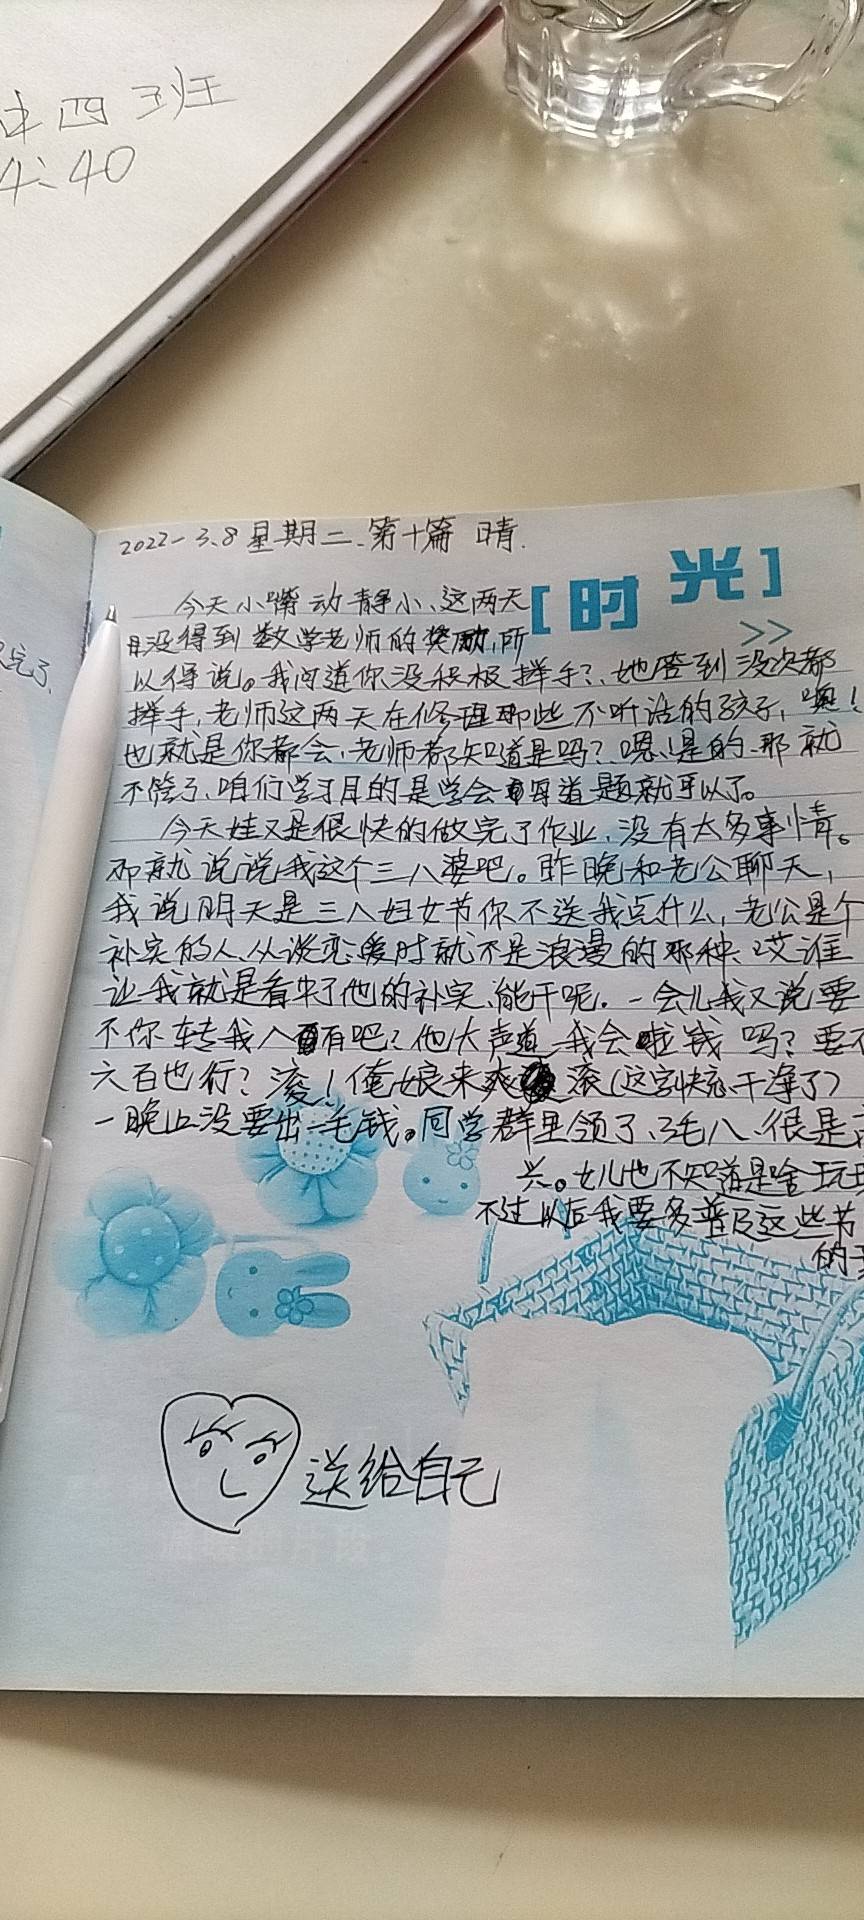 四 班
4:40
完了.
2022-3.8 星期二.第十篇 晴.
[时光]
>>
今天小嘴动静小、这两天
没得到数学老师的奖励,所
以得说。我问道你没积极择手?、她答到 没次都
择手,老师这两天在修理那些不听话的孩子,噢!
也就是你都会,老师都知道是吗?嗯、是的、那就
不管了、咱们学习目的是学会 道题就可以了。
今天娃又是很快的做完了作业,没有太多事情。
那就说说我这个三八婆吧。昨晚和老公聊天,
我说明天是三八妇女节你不送我点什么,老公是个
朴实的人、从谈恋爱时就不是浪漫的那种、哎谁
让我就是看中了他的朴实、能干呢.一会儿我又说要
不你转我八百吧?他大声道 我会啦钱吗?要不
六百也行?滚!俺娘来 滚(这字 干净了)
一晚上没要出一毛钱。同学群里领了、3毛八、很是高
兴。女儿也不知道是啥玩
不过以后我要多普及这些节
的
送给自己